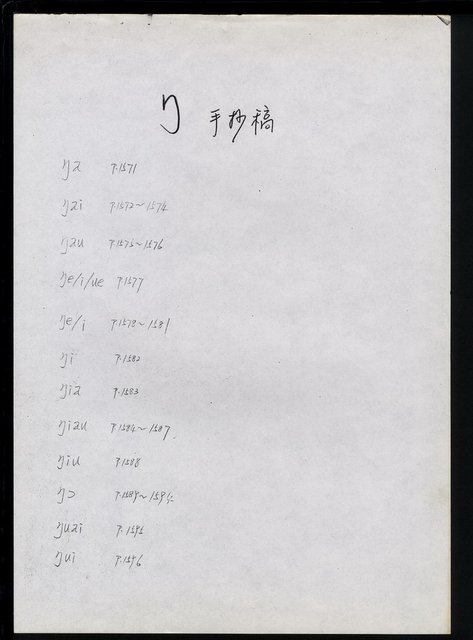 ŋ 手抄稿
ŋa P.1571
ŋai P.1572~1574
ŋau P.1575~1576
ŋe/i/ue P.1577
ŋe/i P.1578~1581
ŋi P.1582
ŋia P.1583
ŋiau P.1584~1587
ŋiu P.1588
ŋɔ P.1589~1594
ŋuai P.1595
ŋui P.1596